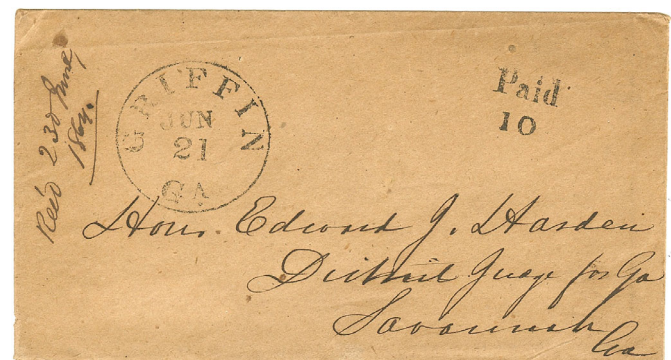 Rec'd 23d June
1864.
GRIFFIN
JUN
21
GA
Paid
10
Hon. Edward J. Harden
District Judge for Ga
Savannah
Ga